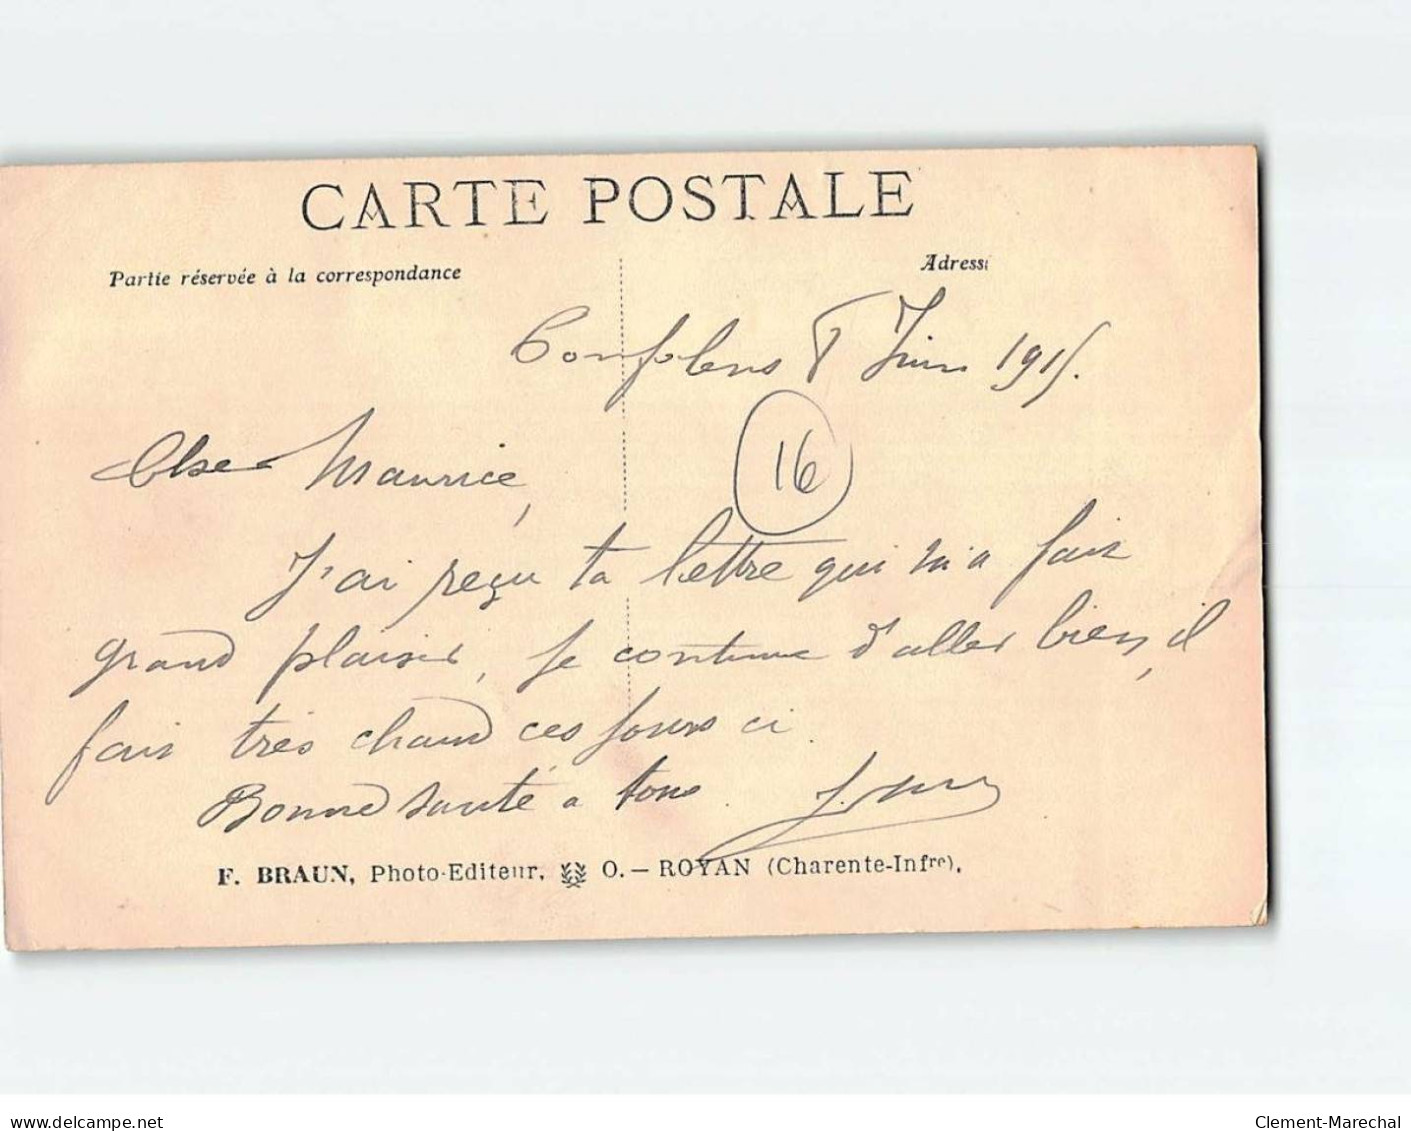 CARTE POSTALE
Partie réservée à la correspondance
Adress
Confolens 8 Juin 1915.
16
Cher Maurice,
J'ai reçu ta lettre qui m'a fait
grand plaisir, je continue d'aller bien, il
fait très chaud ces jours ci.
Bonne santé a tous.
F. BRAUN, Photo-Editeur, O. — ROYAN (Charente-Infre).
delcampe.net
Clement-Marechal